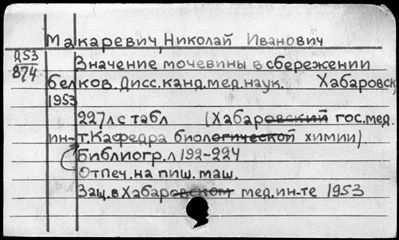 Макаревич, Николай Иванович
Д53
874
Значение мочевины в сбережении
белков. Дисс.канд.мед.наук. Хабаровск,
1953
227лс табл (Хабаровский гос.мед.
ин-т.Кафедра биологической химии)
Библиогр.л 192-224
Отпеч.на пиш.маш.
Защ.в Хабаровском мед.ин-те 1953